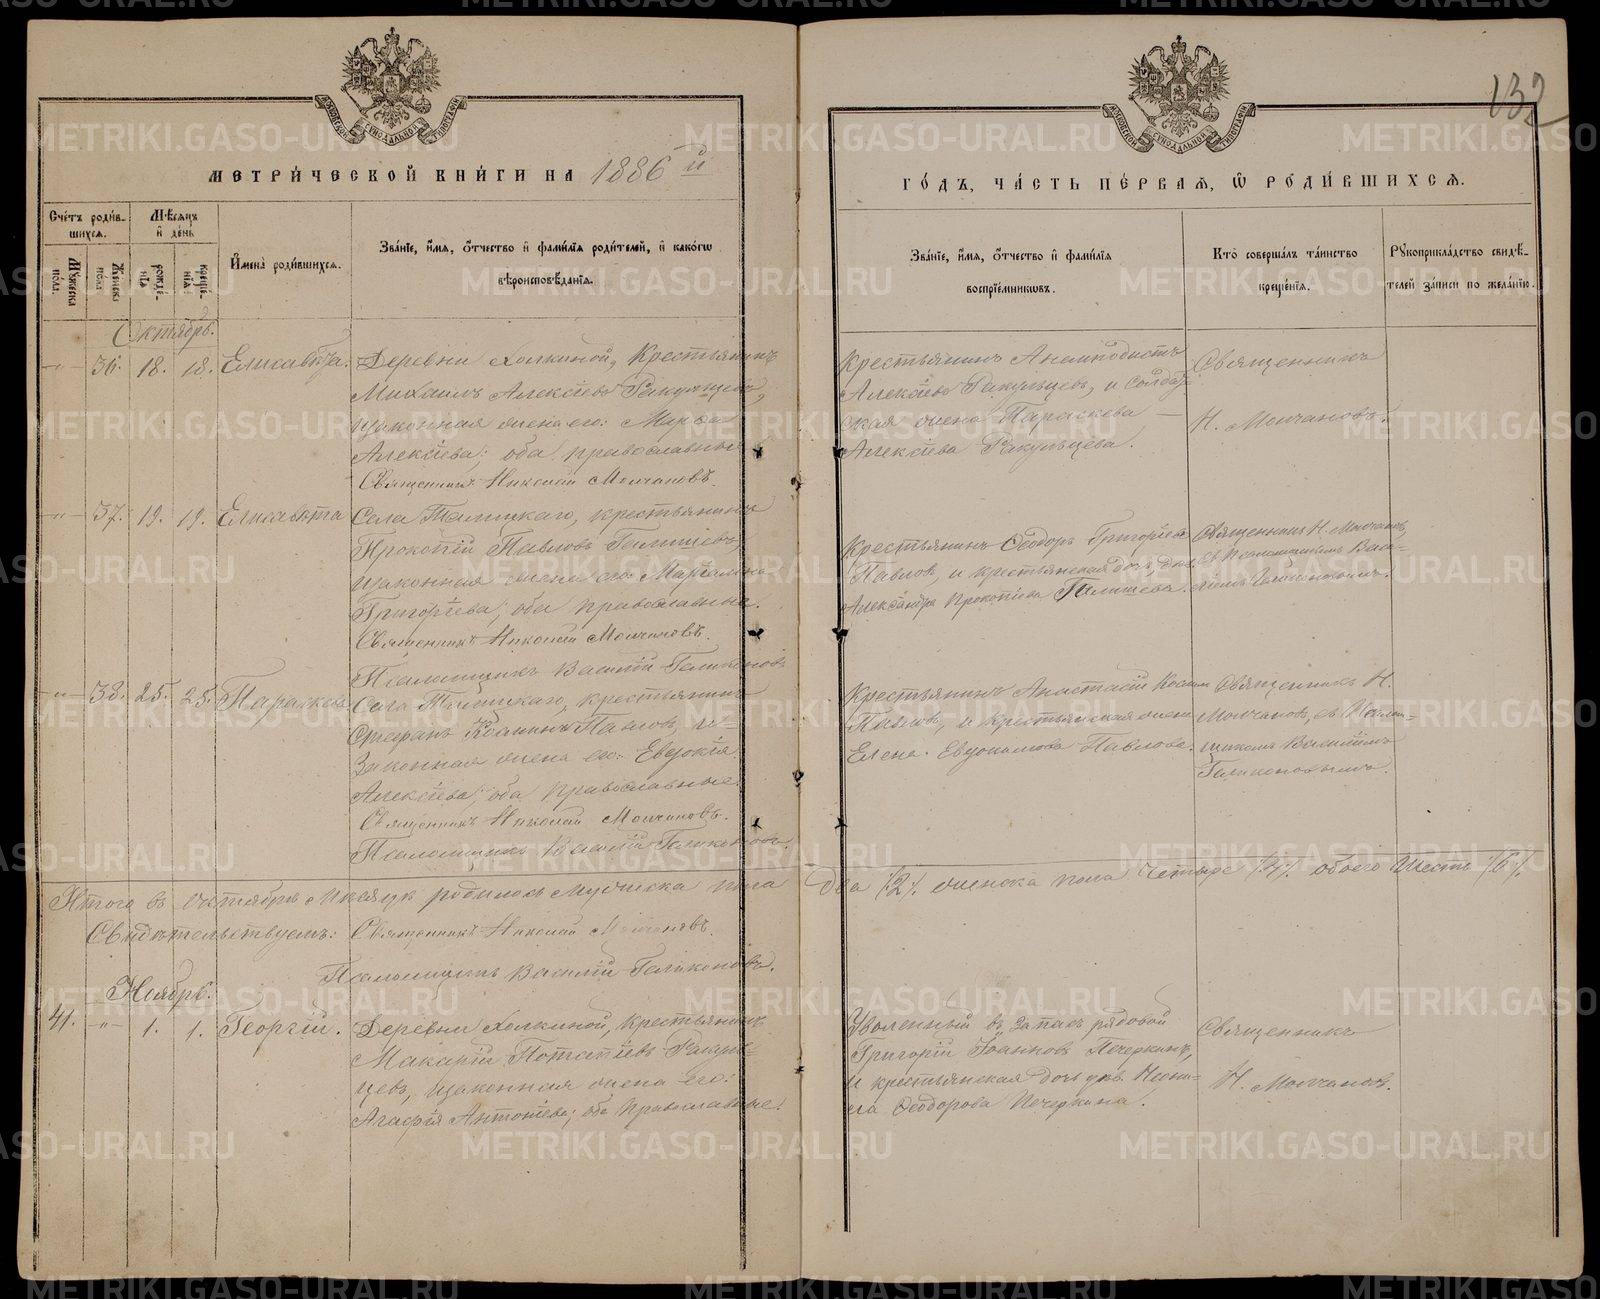 132
МОСКОВСКОЙ СѴНОДАЛЬНОЙ ТИПОГРАФІИ
МОСКОВСКОЙ СѴНОДАЛЬНОЙ ТИПОГРАФІИ
МЕТРИ́ЧЕСКОЙ КНИ́ГИ НА 1886 й
ГО́ДЪ, ЧА́СТЬ ПЕ́РВАЯ, Ѿ РОДИ́ВШИХСЯ.
Сче́тъ роди́в-
шихся.
Мѣ́сяцъ
и҆ де́нь
Мꙋ́жеска
пола̀.
Же́нска
пола̀.
рожде́-
нїѧ.
креще́-
нїѧ.
И҆мена̀ роди́вшихся.
Зва́нїе, и҆́мя, ѻ҆́тчество и҆ фами́лїя роди́телей, и҆ како́гѡ
вѣроисповѣ́данїя.
Зва́нїе, и҆́мя, ѻ҆́тчество и҆ фами́лїя
воспрїе́мникѡвъ.
Кто̀ соверша́лъ та́инство
креще́нїя.
Рꙋкоприкла́дство свидѣ́-
телей за́писи по жела́нїю.
Октябрь.
-„- 36. 18. 18. Елисавѣта. Деревни Холкиной, Крестьянинъ
Михаилъ Алексѣевъ Ракульцевъ,
законная жена его: Марѳа
Алексѣева; оба православные
Священникъ Николай Молчановъ.
Крестьянинъ Анемподистъ
Алексѣевъ Ракульцевъ, и солдат-
ская жена Параскева
Алексѣева Ракульцева.
Священникъ
Н. Молчановъ.
-„- 37. 19. 19. Елисавѣта Села Талицкаго, крестьянинъ
Прокопій Павловъ Галишевъ,
законная жена его: Маріамна
Григоріева; оба православные.
Священникъ Николай Молчановъ.
Псаломщикъ Василій Геликоновъ
Крестьянинъ Ѳеодоръ Григоріевъ
Павловъ, и крестьянская дочь дѣв.
Александра Прокопіева Галишева.
Священникъ Н. Молчановъ,
съ Псаломщикомъ Васи-
ліемъ Геликоновымъ.
-„- 38. 25. 25. Параскева Села Талицкаго, крестьянинъ
Стефанъ Косминъ Павловъ, и
Законная жена его: Евдокія
Алексѣева; оба православные.
Священникъ Николай Молчановъ.
Псаломщикъ Василій Геликоновъ.
Крестьянинъ Анастасій Космин
Павловъ, и крестьянская жена
Елена Евдокимова Павлова.
Священникъ Н.
Молчановъ, съ Псалом-
щикомъ Василіемъ
Геликоновымъ.
Итого въ октябрѣ мѣсяцѣ родилось мужеска пола
два /2/. женска пола четыре /4/. обоего шесть /6/.
Свидѣтельствуемъ: Священникъ Николай Молчановъ.
Псаломщикъ Василій Геликоновъ.
Ноябрь.
41. -„- 1. 1. Георгій. Деревни Холкиной, Крестьянинъ
Макарій Потапіевъ Ракуль-
цевъ, законная жена его:
Агафія Антоніева; оба православные.
Уволенный въ запасъ рядовой
Григорій Іоанновъ Печеркинъ,
и крестьянская дочь дѣв. Неони-
ла Ѳеодорова Печеркина.
Священникъ
Н. Молчановъ.
METRIKI.GASO-URAL.RU